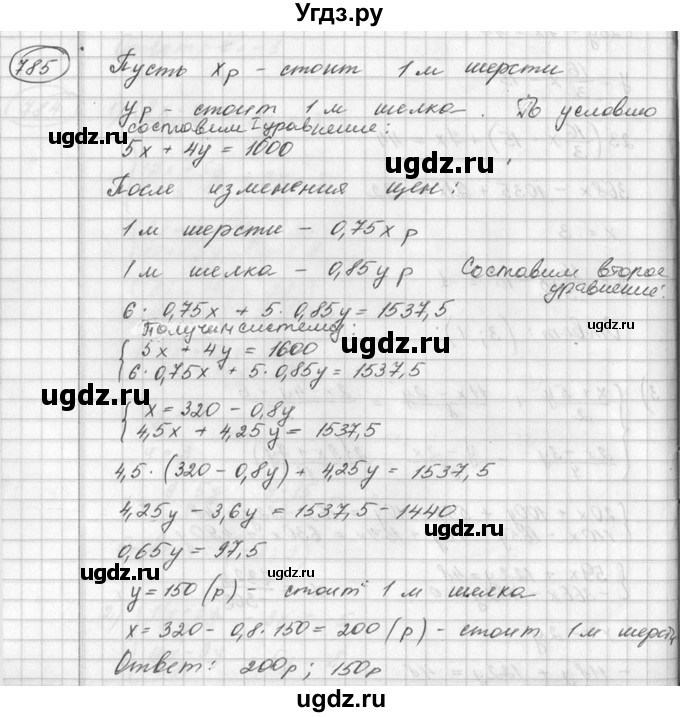 Угдз.ру
785
Пусть x р - стоит 1 м шерсти
y р - стоит 1 м шелка. По условию
составим I уравнение:
5x + 4y = 1600
После изменения цен:
1 м шерсти - 0,75x р
1 м шелка - 0,85y р Составим второе
уравнение:
6 · 0,75x + 5 · 0,85y = 1537,5
Получим систему:
5x + 4y = 1600
6 · 0,75x + 5 · 0,85y = 1537,5
x = 320 - 0,8y
4,5x + 4,25y = 1537,5
4,5 · (320 - 0,8y) + 4,25y = 1537,5
4,25y - 3,6y = 1537,5 - 1440
0,65y = 97,5
y = 150 (р) - стоит 1 м шелка
x = 320 - 0,8 · 150 = 200 (р) - стоит 1 м шерсти
Ответ: 200р; 150р
ugdz.ru
ugdz.ru
ugdz.ru
ugdz.ru
ugdz.ru
ugdz.ru
ugdz.ru
ugdz.ru
ugdz.ru
ugdz.ru
ugdz.ru
ugdz.ru
ugdz.ru